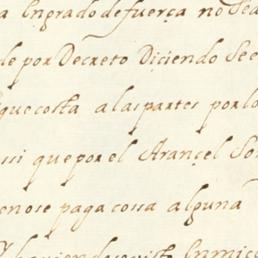 a Engrado de fuerça no sea
de por Decreto Diciendo See
que costa a las partes por lo
ssi que por el Arançel So
enose paga cossa alguna